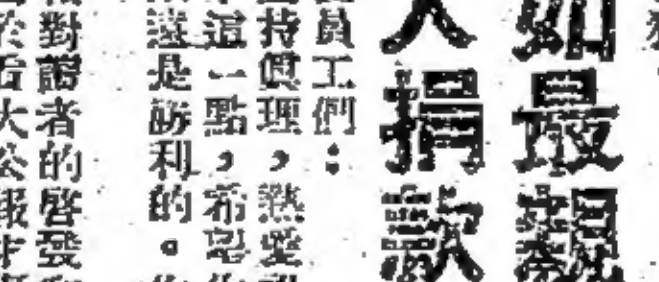 如最親
人捐款
員工們：
持眞理，熱愛
這一點，希望
遠是勝利的。
對讀者的啓發
看大公報才